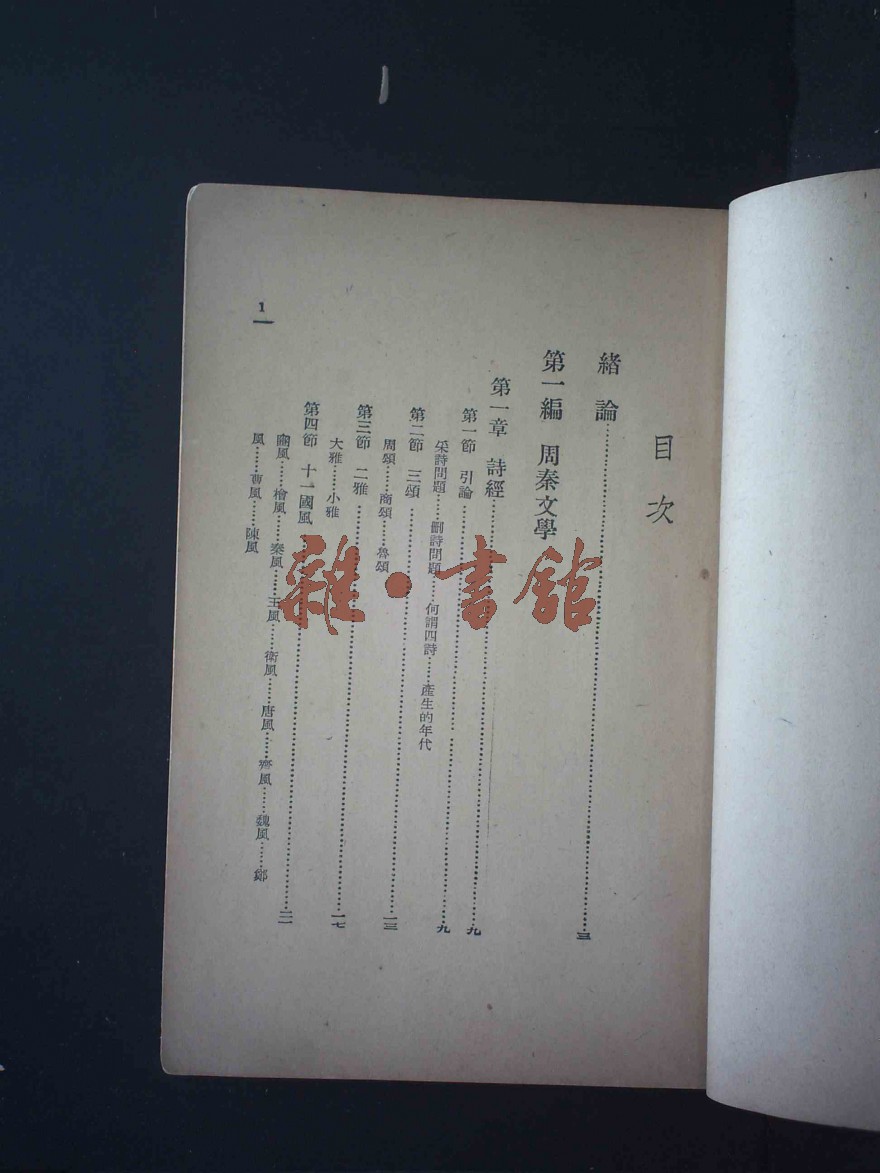 目次
緒論……三
第一編 周秦文學
第一章 詩經……九
第一節 引論……九
采詩問題……刪詩問題……何謂四詩……產生的年代
第二節 三頌……一三
周頌……商頌……魯頌
第三節 二雅……一七
大雅……小雅
第四節 十一國風……二一
豳風……檜風……秦風……王風……衛風……唐風……齊風……魏風……鄭
風……曹風……陳風
1
雜·書館